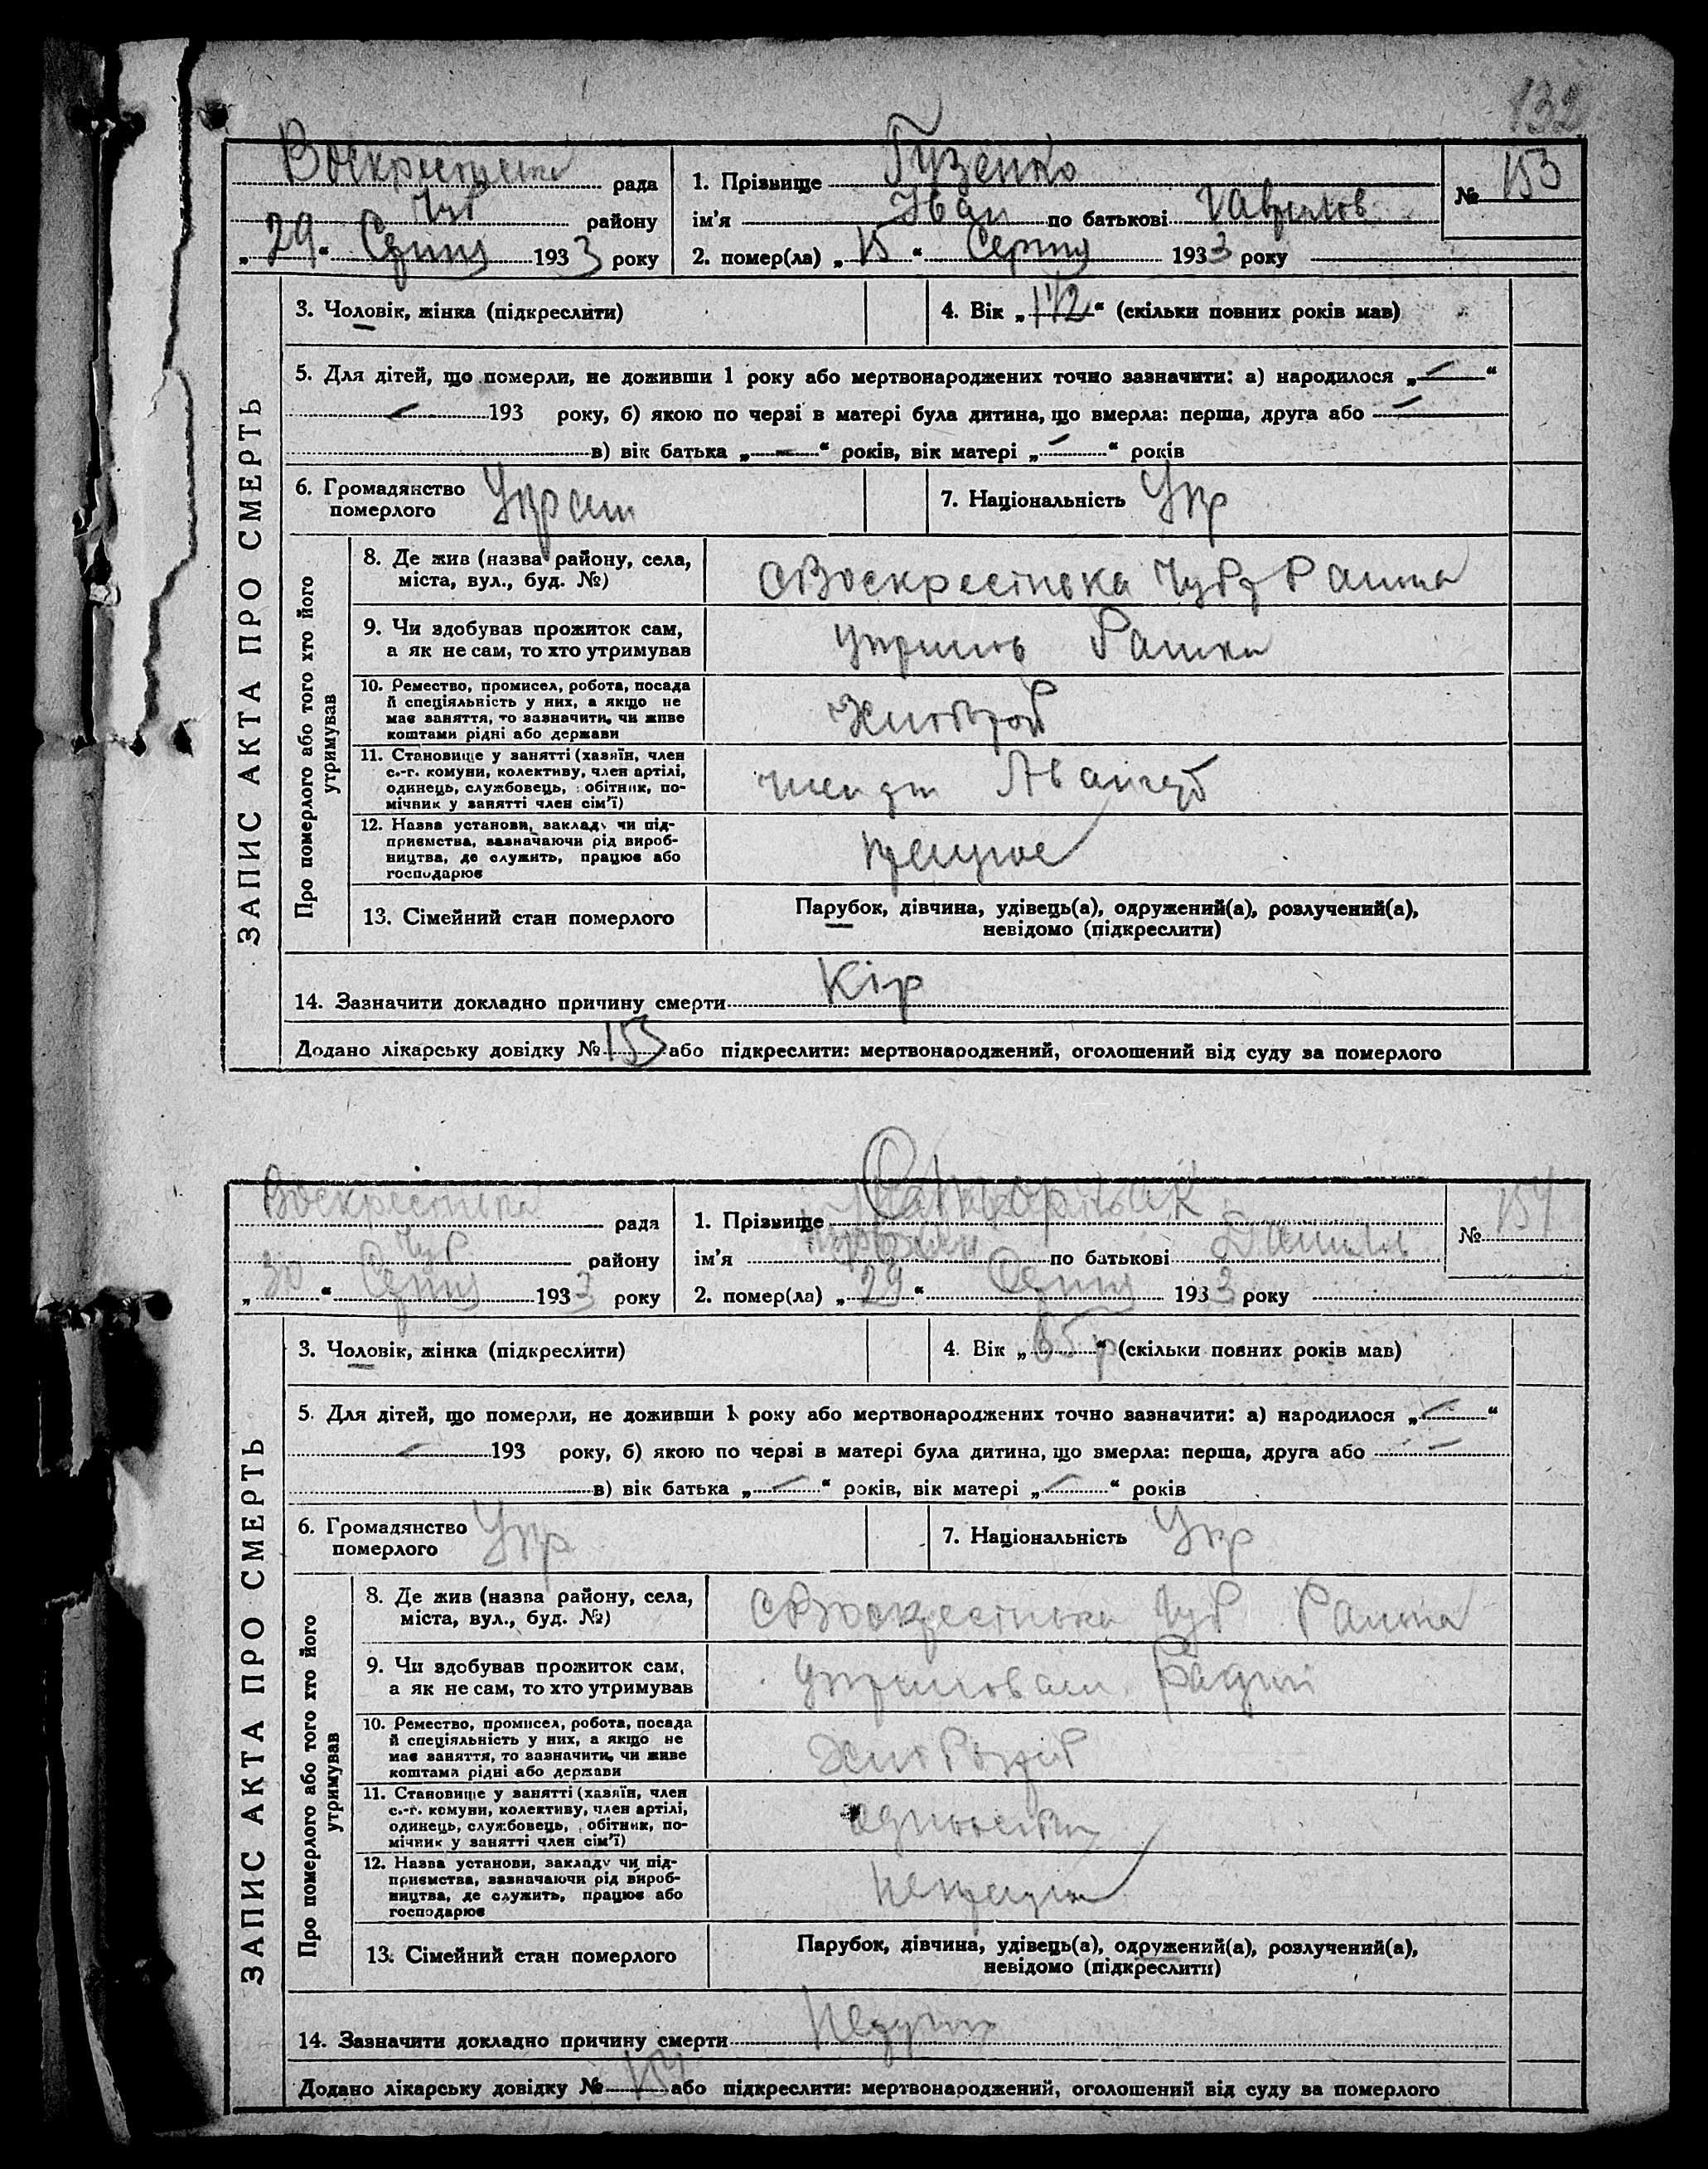 132
Воскресенська рада
Чуб району
„29“ Серпня 1933 року
1. Прізвище Гузенко
ім'я Іван по батькові Гаврилов
2. помер(ла) „15“ Серпня 1933 року
№ 153
ЗАПИС АКТА ПРО СМЕРТЬ
3. Чоловік, жінка (підкреслити)
4. Вік „1 1/2“ (скільки повних років мав)
5. Для дітей, що померли, не доживши 1 року або мертвонароджених точно зазначити: а) народилося „—“
— 193 року, б) якою по черзі в матері була дитина, що вмерла: перша, друга або —
в) вік батька „—“ років, вік матері „—“ років
6. Громадянство
померлого
7. Національність Укр
Про померлого або того хто його
утримував
8. Де жив (назва району, села,
міста, вул., буд. №)
с Воскресенська Чуб Района
9. Чи здобував прожиток сам,
а як не сам, то хто утримував
10. Ремество, промисел, робота, посада
й спеціяльність у них, а якщо не
має заняття, то зазначити, чи живе
коштами рідні або держави
11. Становище у занятті (хазяїн, член
с.-г. комуни, колективу, член артілі,
одинець, службовець, робітник, по-
мічник у занятті член сім'ї)
12. Назва установи, закладу чи під-
приємства, зазначаючи рід вироб-
ництва, де служить, працює або
господарює
працює
13. Сімейний стан померлого
Парубок, дівчина, удівець(а), одружений(а), розлучений(а),
невідомо (підкреслити)
14. Зазначити докладно причину смерти Кір
Додано лікарську довідку № 153 або підкреслити: мертвонароджений, оголошений від суду за померлого
Воскресенська рада
Чуб району
„30“ Серпня 1933 року
1. Прізвище
ім'я по батькові Данилов
2. помер(ла) „29“ Серпня 1933 року
№ 154
ЗАПИС АКТА ПРО СМЕРТЬ
3. Чоловік, жінка (підкреслити)
4. Вік „65 р“ (скільки повних років мав)
5. Для дітей, що померли, не доживши 1 року або мертвонароджених точно зазначити: а) народилося „—“
— 193 року, б) якою по черзі в матері була дитина, що вмерла: перша, друга або —
в) вік батька „—“ років, вік матері „—“ років
6. Громадянство Укр
померлого
7. Національність Укр
Про померлого або того хто його
утримував
8. Де жив (назва району, села,
міста, вул., буд. №)
с Воскресенська Чуб Района
9. Чи здобував прожиток сам,
а як не сам, то хто утримував
10. Ремество, промисел, робота, посада
й спеціяльність у них, а якщо не
має заняття, то зазначити, чи живе
коштами рідні або держави
11. Становище у занятті (хазяїн, член
с.-г. комуни, колективу, член артілі,
одинець, службовець, робітник, по-
мічник у занятті член сім'ї)
12. Назва установи, закладу чи під-
приємства, зазначаючи рід вироб-
ництва, де служить, працює або
господарює
13. Сімейний стан померлого
Парубок, дівчина, удівець(а), одружений(а), розлучений(а),
невідомо (підкреслити)
14. Зазначити докладно причину смерти
Додано лікарську довідку № 154 або підкреслити: мертвонароджений, оголошений від суду за померлого